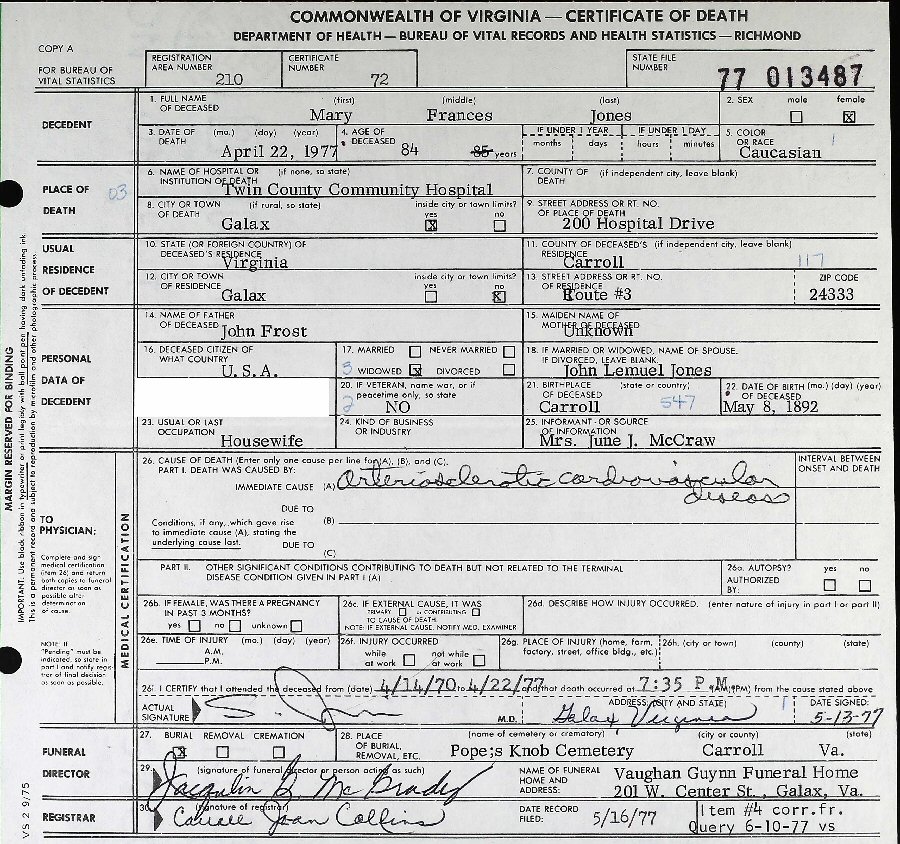 COMMONWEALTH OF VIRGINIA — CERTIFICATE OF DEATH
DEPARTMENT OF HEALTH — BUREAU OF VITAL RECORDS AND HEALTH STATISTICS — RICHMOND
COPY A
FOR BUREAU OF VITAL STATISTICS
REGISTRATION AREA NUMBER 210
CERTIFICATE NUMBER 72
STATE FILE NUMBER 77 013487
DECEDENT
1. FULL NAME OF DECEASED (first) (middle) (last)
Mary Frances Jones
2. SEX male female X
3. DATE OF DEATH (mo.) (day) (year)
April 22, 1977
4. AGE OF DECEASED 84 85 years
IF UNDER 1 YEAR months days
IF UNDER 1 DAY hours minutes
5. COLOR OR RACE
Caucasian
PLACE OF DEATH
03
6. NAME OF HOSPITAL OR INSTITUTION OF DEATH (if none, so state)
Twin County Community Hospital
7. COUNTY OF DEATH (if independent city, leave blank)
8. CITY OR TOWN OF DEATH (if rural, so state)
Galax
inside city or town limits? yes X no
9. STREET ADDRESS OR RT. NO. OF PLACE OF DEATH
200 Hospital Drive
USUAL RESIDENCE OF DECEDENT
10. STATE (OR FOREIGN COUNTRY) OF DECEASED'S RESIDENCE
Virginia
11. COUNTY OF DECEASED'S RESIDENCE (if independent city, leave blank)
Carroll 117
12. CITY OR TOWN OF RESIDENCE
Galax
inside city or town limits? yes no X
13. STREET ADDRESS OR RT. NO. OF RESIDENCE
Route #3
ZIP CODE
24333
PERSONAL DATA OF DECEDENT
14. NAME OF FATHER OF DECEASED
John Frost
15. MAIDEN NAME OF MOTHER OF DECEASED
Unknown
16. DECEASED CITIZEN OF WHAT COUNTRY
U.S.A.
17. MARRIED NEVER MARRIED
3 WIDOWED X DIVORCED
18. IF MARRIED OR WIDOWED, NAME OF SPOUSE. IF DIVORCED, LEAVE BLANK.
John Lemuel Jones
20. IF VETERAN, name war, or if peacetime only, so state
2 NO
21. BIRTHPLACE OF DECEASED (state or country)
Carroll 547
22. DATE OF BIRTH (mo.) (day) (year) OF DECEASED
May 8, 1892
23. USUAL OR LAST OCCUPATION
Housewife
24. KIND OF BUSINESS OR INDUSTRY
25. INFORMANT - OR SOURCE OF INFORMATION
Mrs. June J. McCraw
MARGIN RESERVED FOR BINDING
IMPORTANT: Use black ribbon in typewriter or print legibly with ball point pen having dark unfading ink.
This is a permanent record and subject to reproduction by microfilm and other photographic process.
TO PHYSICIAN:
Complete and sign medical certification (item 26) and return both copies to funeral director as soon as possible after determination of cause.
NOTE: If "Pending" must be indicated, so state in part I and notify registrar of final decision as soon as possible.
MEDICAL CERTIFICATION
26. CAUSE OF DEATH (Enter only one cause per line for (A), (B), and (C).
PART I. DEATH WAS CAUSED BY:
INTERVAL BETWEEN ONSET AND DEATH
IMMEDIATE CAUSE (A) Arteriosclerotic cardiovascular disease
DUE TO
Conditions, if any, which gave rise to immediate cause (A), stating the underlying cause last.
(B)
DUE TO
(C)
PART II. OTHER SIGNIFICANT CONDITIONS CONTRIBUTING TO DEATH BUT NOT RELATED TO THE TERMINAL DISEASE CONDITION GIVEN IN PART I (A)
26a. AUTOPSY? yes no
AUTHORIZED BY:
26b. IF FEMALE, WAS THERE A PREGNANCY IN PAST 3 MONTHS?
yes no unknown
26c. IF EXTERNAL CAUSE, IT WAS
PRIMARY or CONTRIBUTING
TO CAUSE OF DEATH
NOTE: IF EXTERNAL CAUSE, NOTIFY MED. EXAMINER
26d. DESCRIBE HOW INJURY OCCURRED. (enter nature of injury in part I or part II)
26e. TIME OF INJURY (mo.) (day) (year)
A.M.
P.M.
26f. INJURY OCCURRED
while at work not while at work
26g. PLACE OF INJURY (home, farm, factory, street, office bldg., etc.)
26h. (city or town) (county) (state)
26i. I CERTIFY that I attended the deceased from (date) 4/14/70 to 4/22/77 and that death occurred at 7:35 P.M. (AM)(PM) from the cause stated above
ACTUAL SIGNATURE
M.D.
ADDRESS (CITY AND STATE)
Galax Virginia
DATE SIGNED:
5-13-77
FUNERAL DIRECTOR
27. BURIAL REMOVAL CREMATION
X
28. PLACE OF BURIAL, REMOVAL, ETC.
(name of cemetery or crematory) (city or county) (state)
Pope;s Knob Cemetery Carroll Va.
29. (signature of funeral director or person acting as such)
Jacquelin B. McGrady
NAME OF FUNERAL HOME AND ADDRESS:
Vaughan Guynn Funeral Home
201 W. Center St., Galax, Va.
REGISTRAR
30. (signature of registrar)
Joan Collins
DATE RECORD FILED:
5/16/77
Item #4 corr.fr.
Query 6-10-77 vs
VS 2 9/75